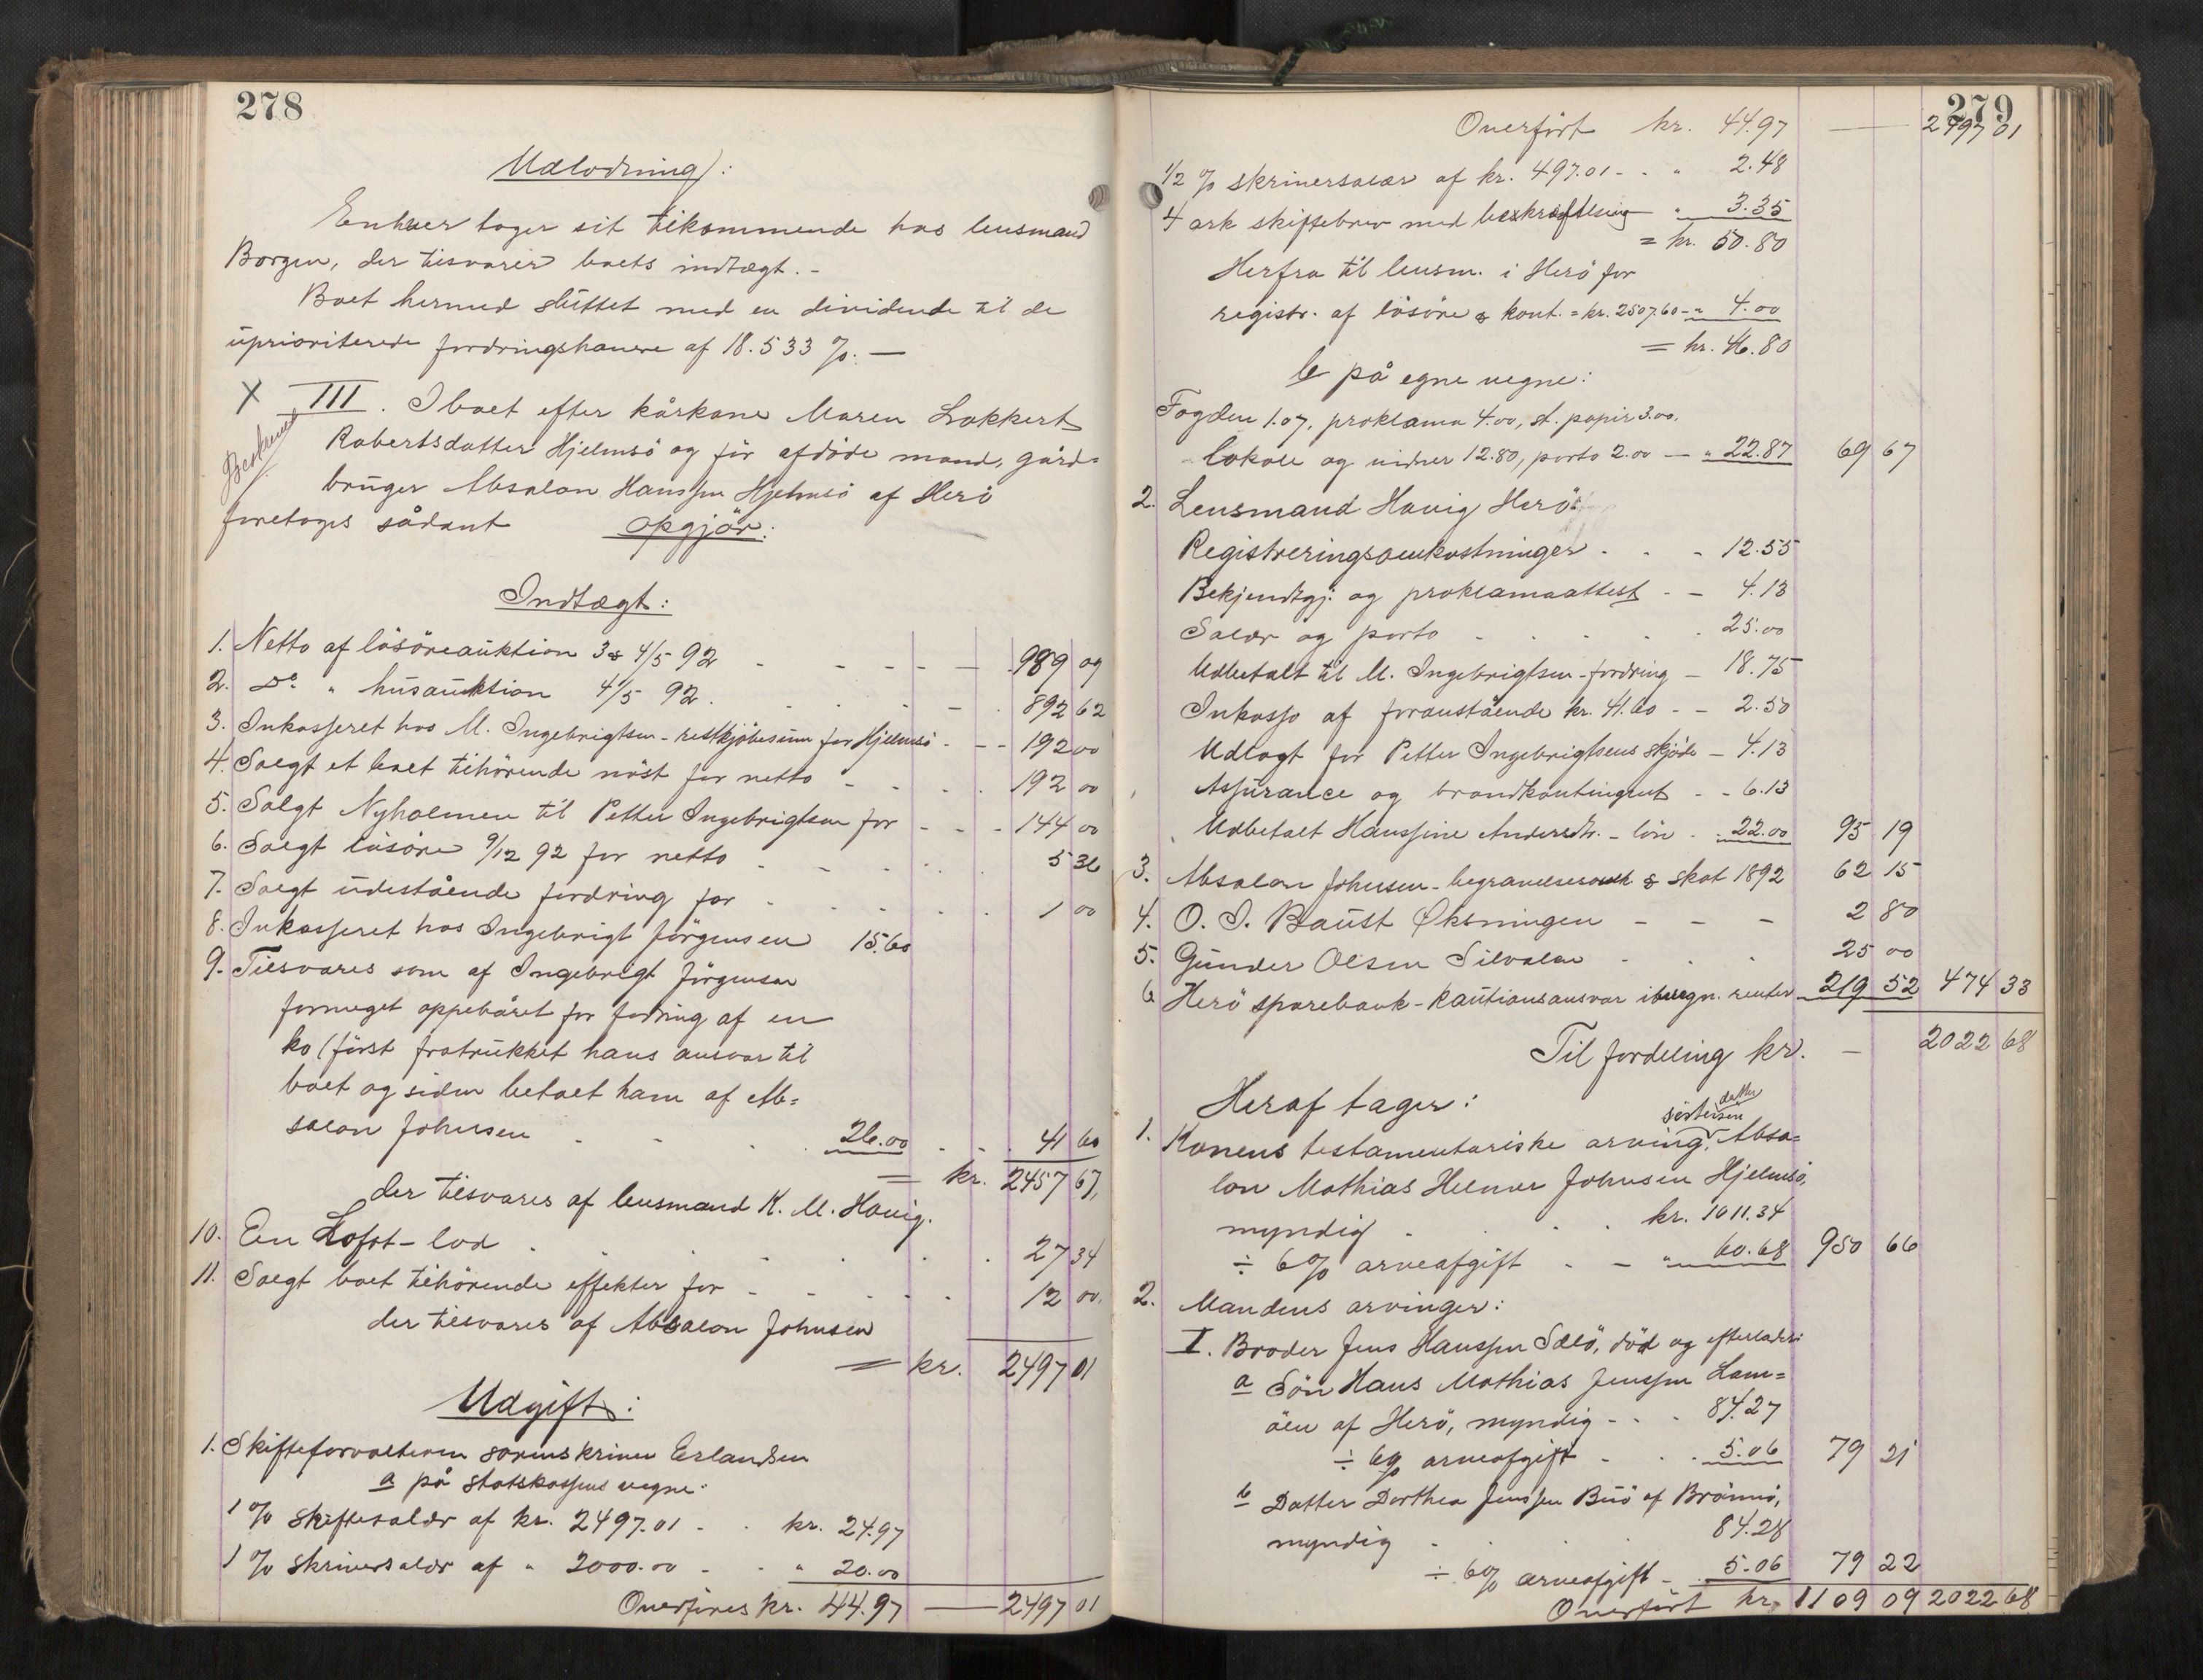 278
Udlodning:
Enhver tager sit tilkommende hos lensmand
Borgen, der tilsvarer boets indtægt. -
Boet hermed sluttet med en dividende til de
uprioriterede fordringshavere af 18.533 %. —
X III. I boet efter kårkone Maren Lokkert
Beskrevet
Robertsdatter Hjelmsö og för afdöde mand, gård=
bruger Absalon Hanssen Hjelmsö af Herö
foretages sådant opgjör:
Indtægt:
1. Netto af lösöreauktion 3 & 4/5 92 - - - - 989 09
2. Do " husauktion 4/5 92 . . . . - . 892 62
3. Inkasseret hos M. Ingebrigtsen - restkjöbesum for Hjelmsö - - - 192 00
4. Solgt et boet tilhörende nöst for netto - - . . 192 00
5. Solgt Nyholmen til Petter Ingebrigtsen for - - - 144 00
6. Solgt lösöre 9/12 92 for netto - - . . . 5 36
7. Solgt udestående fordring for - - . . . 1 00
8. Inkasseret hos Ingebrigt Jörgensen 15.60
9. Tilsvares som af Ingebrigt Jörgensen
formeget oppebåret for fodring af en
ko (först fratrukket hans ansvar til
boet og siden betalt ham af Ab=
salon Johnsen - - . 26.00 . . . 41 60
= kr. 2457 67,
der tilsvares af lensmand K. M. Havig.
10. En Lofot-lod . . . . . . 27 34
11. Solgt boet tilhörende effekter for - - . . . 12 00.
der tilsvares af Absalon Johnsen
= kr. 2497 01
Udgift:
1. Skifteforvalteren sorenskriver Erlandsen
a på statskassens vegne:
1 % skiftesalær af kr. 2497.01 - . kr. 24.97
1 % skriversalær af " 2000.00 - . " 20.00
Overföres kr. 44.97 — 2497 01
279
Overfört kr. 44.97 — 2497 01
1/2 % skriversalær af kr. 497.01 - . " 2.48
4 ark skiftebrev med bekræftelse " 3.35
= kr. 50.80
Herfra til lensm. i Herö for
registr. af lösöre & kont. = kr. 2507.60 - " 4.00
= kr. 46.80
b på egne vegne:
Fogden 1.07, proklama 4.00, st. papir 3.00.
lokale og vidner 12.80, porto 2.00 — " 22.87 69 67
2. Lensmand Havig Herö:
Registreringsomkostninger . . - 12.55
Bekjendtgj. og proklamaattest - - 4.13
Salær og porto - . . . . 25.00
Udbetalt til M. Ingebrigtsen - fordring - 18.75
Inkasso af foranstående kr. 41.60 - - 2.50
Udlagt for Petter Ingebrigtsens skjöde - 4.13
Assurance og brandkontingent - - 6.13
Udbetalt Hanssine Andersdtr. - lön . . 22.00 95 19
3. Absalon Johnsen - begravelsesomk. & skat 1892 62 15
4. O. I. Baust Øksningen - - - 2 80
5. Gunder Olsen Silvalen - . . 25 00
6 Herö sparebank - kautionsansvar iberegn. renter 219 52 474 33
Til fordeling kr. — 2022 68
Heraf tager:
datter
sösters
1. Konens testamentariske arving, Absa=
lon Mathias Helmer Johnsen Hjelmsö,
myndig . . . kr. 1011.34
÷ 6% arveafgift - - " 60.68 950 66
2. Mandens arvinger:
I. Broder Jens Hanssen Sælö, död og efterladt:
a Sön Hans Mathias Jenssen Lam=
öen af Herö, myndig - . . 84.27
÷ 6% arveafgift - . . 5.06 79 21
b Datter Dorthea Jenssen Buö af Brönnö,
myndig . . . 84.28
÷ 6% arveafgift - . 5.06 79 22
Overfört kr. 1109 09 2022 68